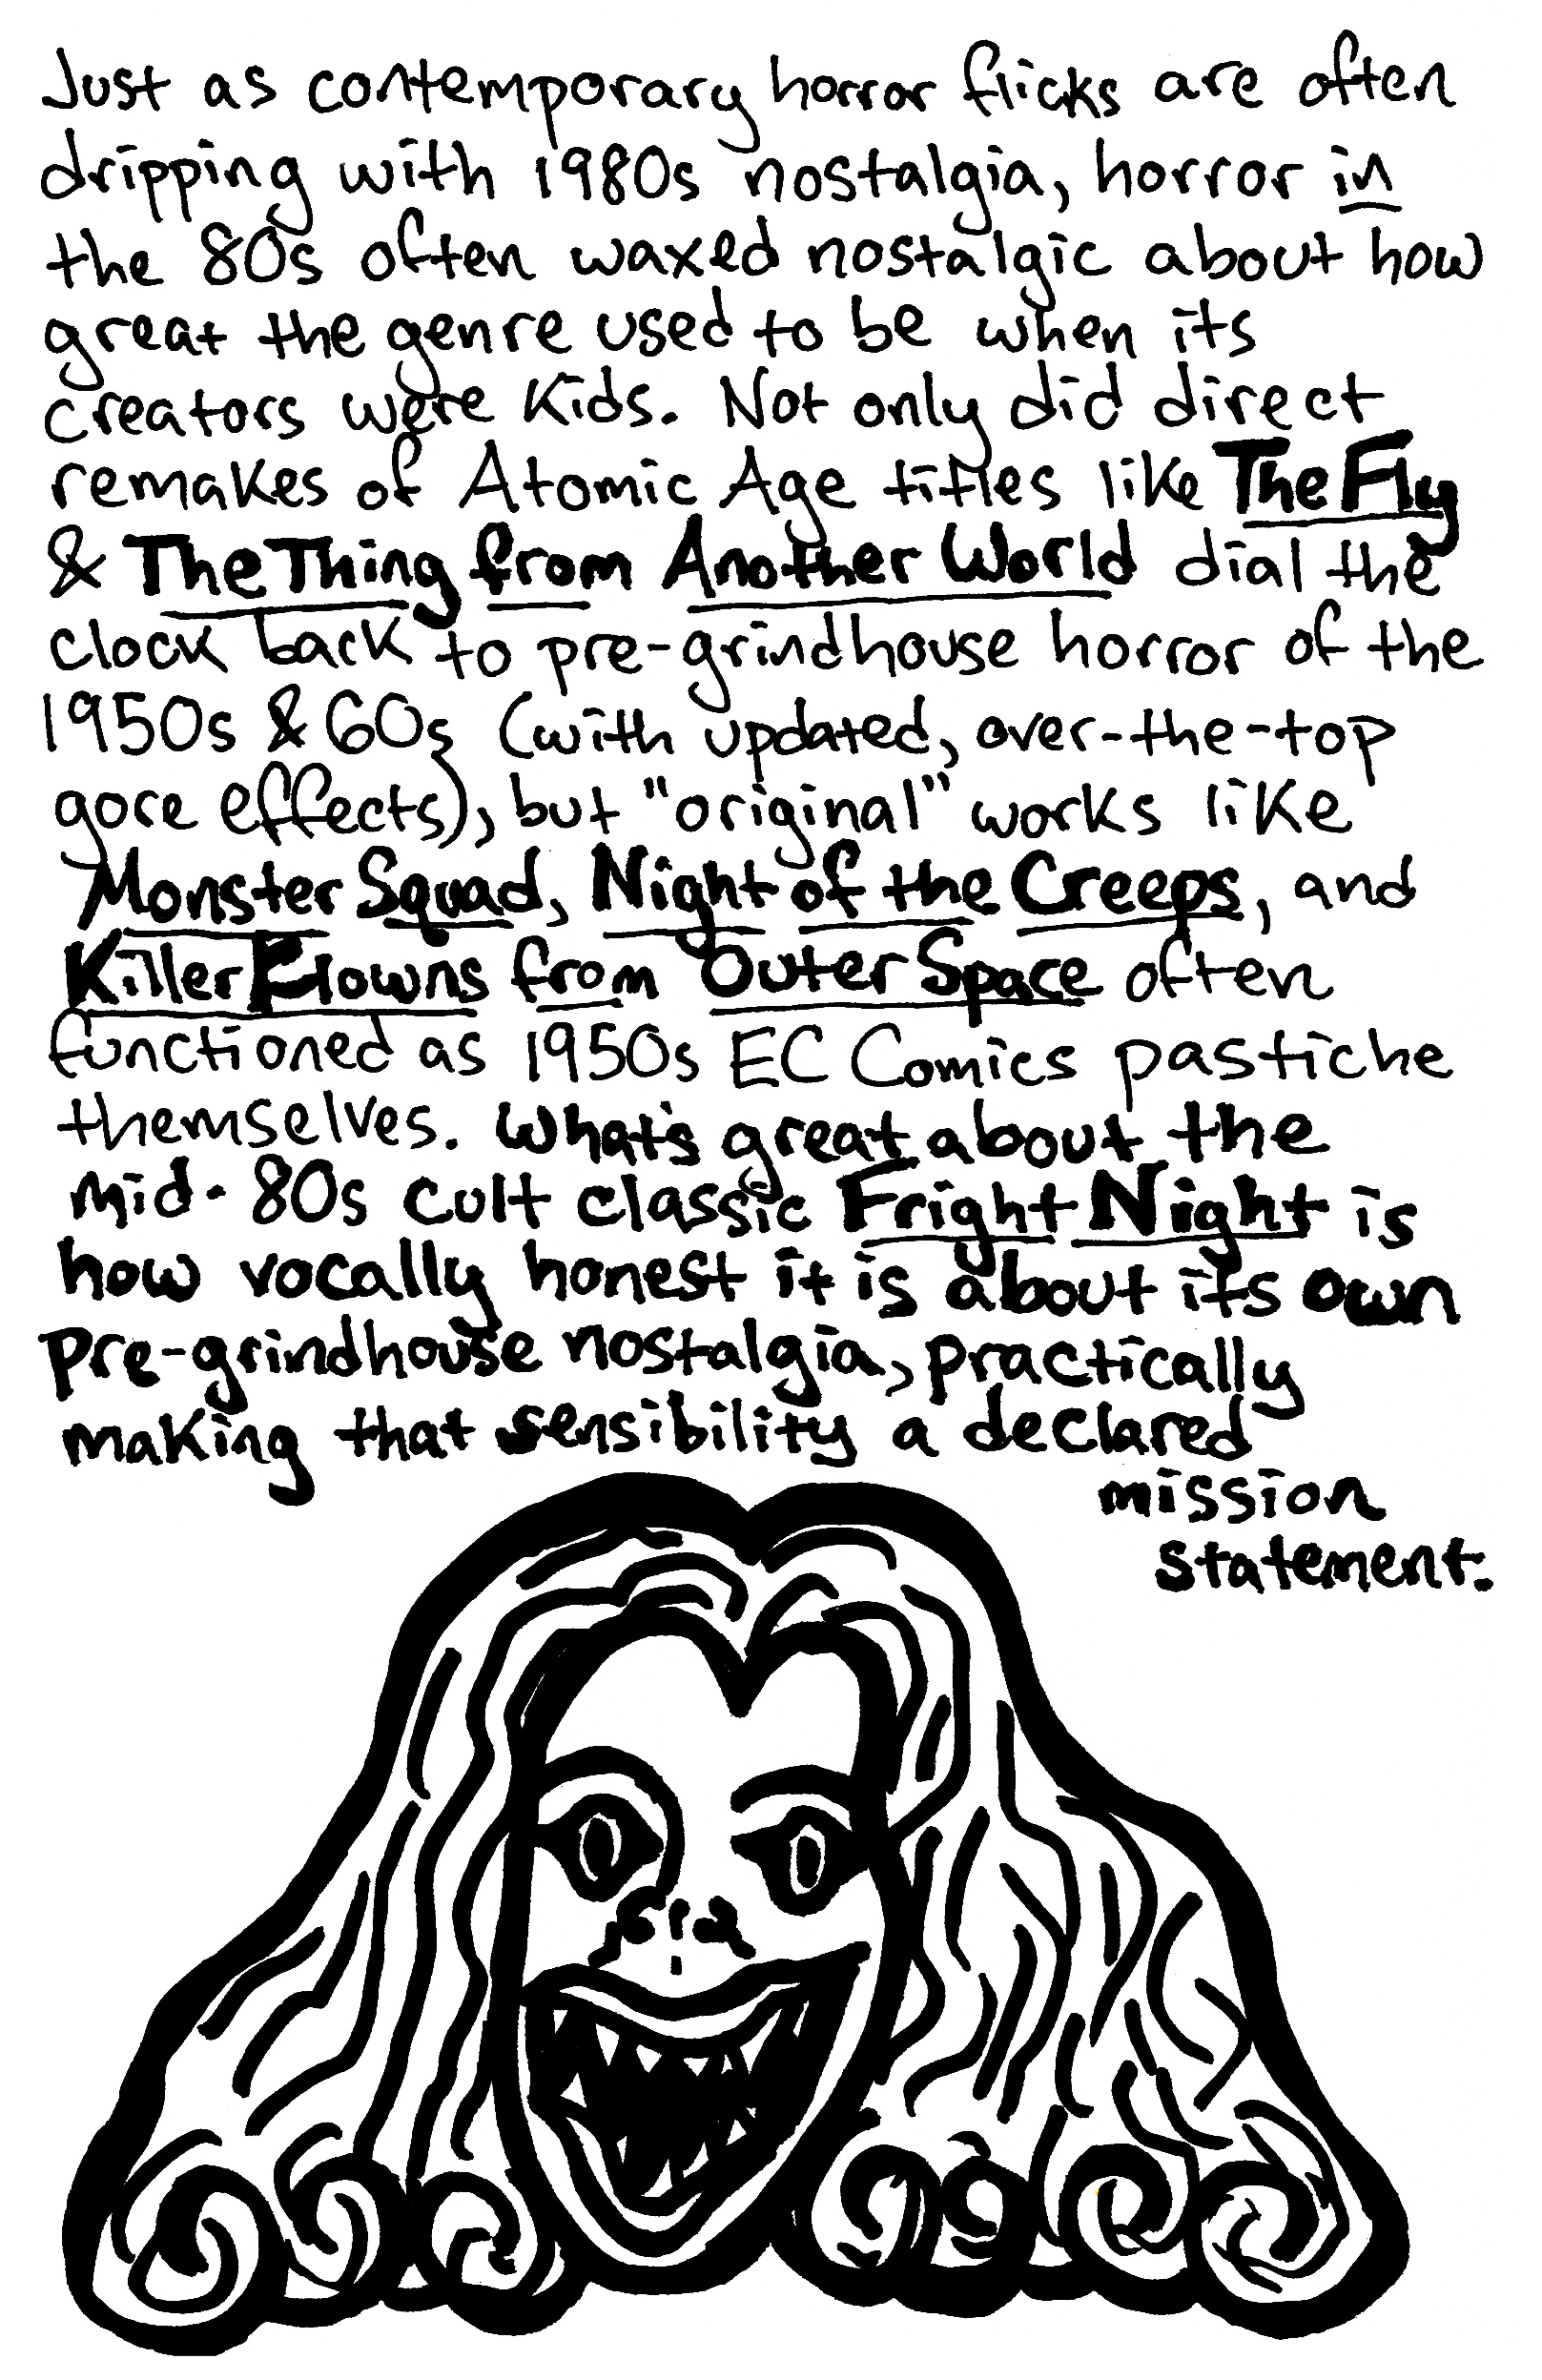 Just as contemporary horror flicks are often
dripping with 1980s nostalgia, horror in
the 80s often waxed nostalgic about how
great the genre used to be when its
creators were kids. Not only did direct
remakes of Atomic Age titles like The Fly
& The Thing from Another World dial the
clock back to pre-grindhouse horror of the
1950s & 60s (with updated, over-the-top
gore effects), but "original" works like
Monster Squad, Night of the Creeps, and
Killer Klowns from Outer Space often
functioned as 1950s EC Comics pastiche
themselves. What's great about the
mid-80s cult classic Fright Night is
how vocally honest it is about its own
pre-grindhouse nostalgia, practically
making that sensibility a declared
mission
statement.